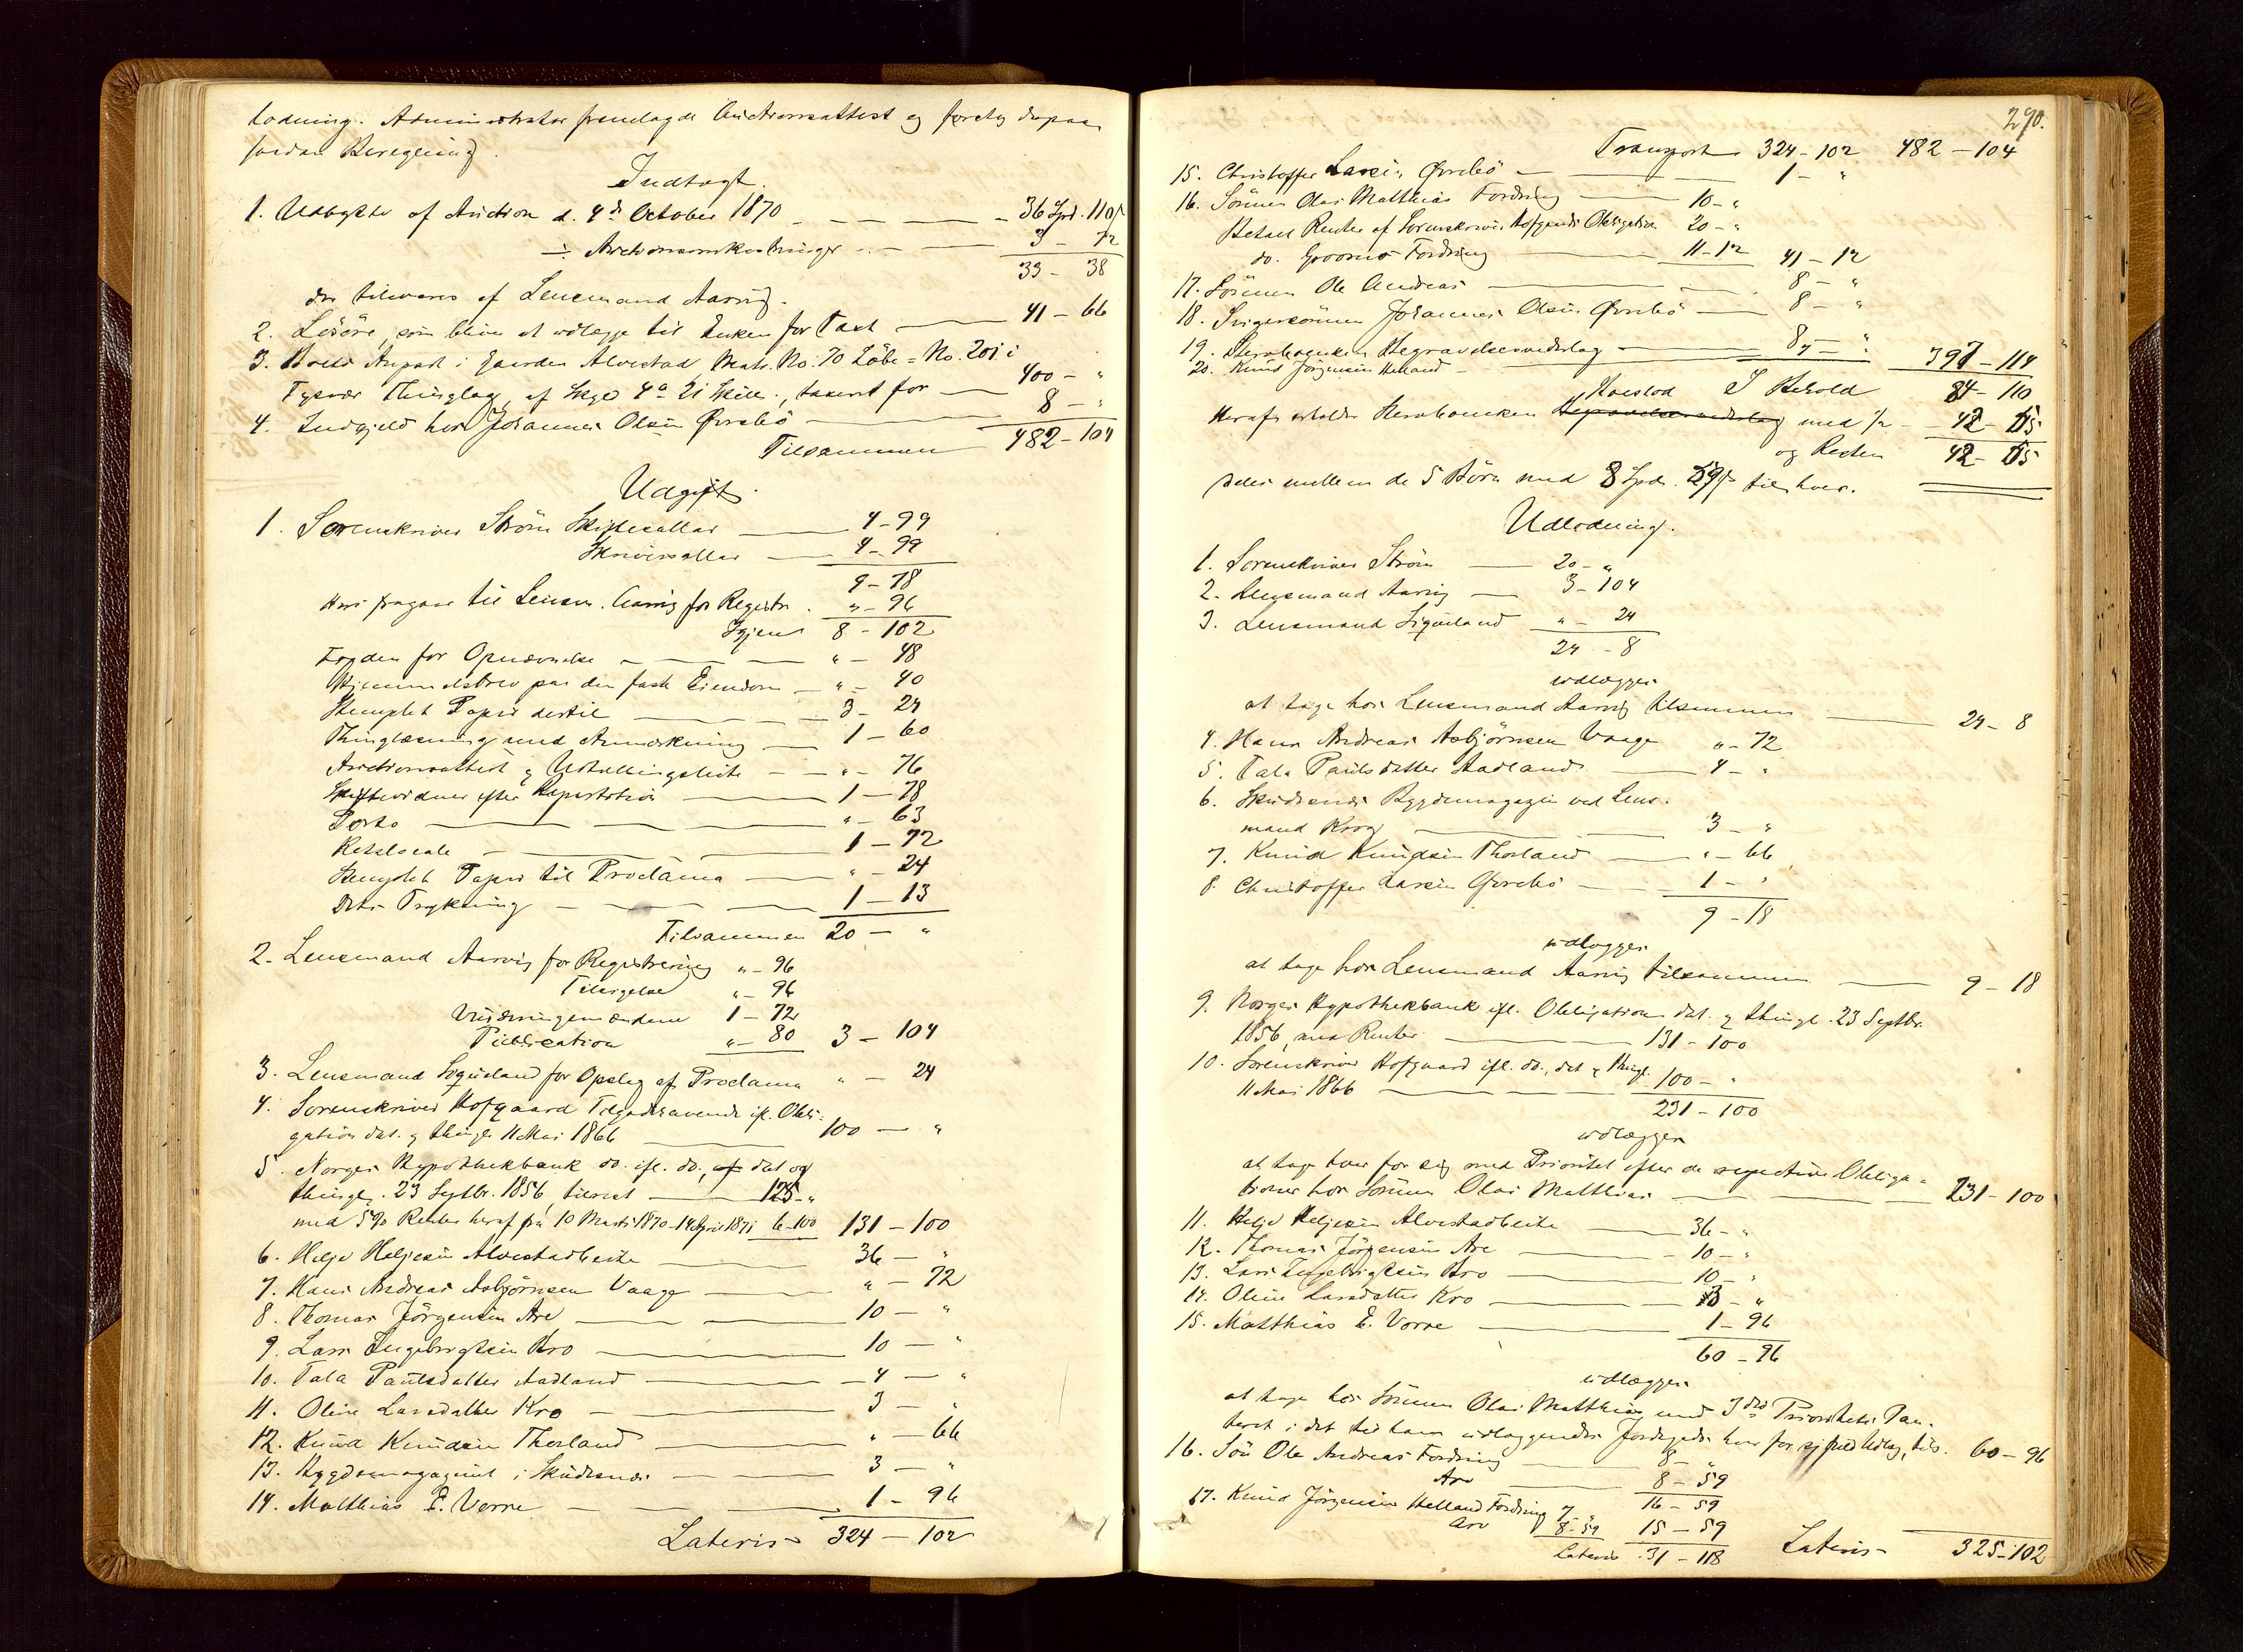 lodning. Administrator fremlagde Auctionsattest og foretog derpaa
saadan Beregning.
Indtægt.
1. Udbytte af Auction d. 4de October 1870 — 36 Spd. 110 s
÷ Auctionsomkostninger — 3 - 72
33 - 38
der tilsvares af Lensmand Aarvig.
2. Løsøre, som bliver at udlægge til Enken for Taxt — 41 - 66
3. Boets Anpart i Gaarden Alvestad Matr. No. 70 Løbe-No. 201 i
Tysvær Thinglag, af Skyld 4 a 21 Skill., taxeret for — 400 - "
4. Indgjeld hos Johannes Olsen Øvrebø — 8 - "
Tilsammen 482 - 104
Udgift.
1. Sorenskriver Strøm Skiftesallar — 4 - 99
Skriversallar — 4 - 99
9 - 78
Heri fragaar til Lensm. Aarvig for Registr. " - 96
Igjen 8 - 102
Fogden for Opnævnelse — " - 48
Hjemmelsbrev paa den faste Eiendom — " - 40
Stemplet Papir dertil — 3 - 24
Thinglæsning med Anmærkning — 1 - 60
Auctionsattest og Udstillingsliste — " - 76
Skiftevidner efter Repartition — 1 - 78
Porto — " - 63
Retslocale — 1 - 72
Stemplet Papir til Proclama — " - 24
Dets Trykning — 1 - 13
Tilsammen 20 - "
2. Lensmand Aarvig for Registrering " - 96
Tilsigelse " - 96
Vurderingsmændene 1 - 72
Publication " - 80 3 - 104
3. Lensmand Siqueland for Opslag af Proclama " - 24
4. Sorenskriver Hofgaard Tilgodehavende ifl. Obli-
gation dat. og thingl. 11 Mai 1866 — 100 - "
5. Norges Hypothekbank do. ifl. do., af dat og
thingl. 23 Septbr. 1856, tilrest — 125 - "
med 5% Renter heraf fra 10 Marts 1870-14 April 1871 6-100 131 - 100
6. Helje Heljesen Alvestadbeite — 36 - "
7. Hans Andreas Asbjørnsen Vaage — " - 72
8. Thomas Jørgensen Are — 10 - "
9. Lars Engebrigtsen Kro — 10 - "
10. Tala Paulsdatter Aadland — 4 - "
11. Oline Larsdatter Kro — 3 - "
12. Knud Knudsen Thorland — " - 66
13. Bygdemagazinet i Skudesnæs — 3 - "
14. Matthias E. Vorre — 1 - 96
Lateris 324 - 102
290.
Transport 324 - 102 482 - 104
15. Christoffer Larsen Øvrebø — 1 - "
16. Sønnen Olas Matthias Fordring — 10 - "
Betalt Renter af Sorenskriver Hofgaards Obligation 20 - "
do. Fordring — 11 - 12 41 - 12
17. Sønnen Ole Andreas — 8 - "
18. Svigersønnen Johannes Olsen Øvrebø — 8 - "
19. Sterboenken Begravelsesvederlag — 8 - "
20. Knud Jørgensen Helland — 7 - " 397 - 114
Boeslod I Behold 84 - 110
Heraf erholder Sterboenken Begravelsesvederlag med 1/2 - 42 - 55
og Resten 42 - 55
deles mellem de 5 Børn med 8 Spd. 59 s til hver.
Udlodning.
1. Sorenskriver Strøm — 20 - "
2. Lensmand Aarvig — 3 - 104
3. Lensmand Siqueland " - 24
24 - 8
udlægges
at tage hos Lensmand Aarvig tilsammen — 24 - 8
4. Hans Andreas Asbjørnsen Vaage " - 72
5. Tala Paulsdatter Aadland — 4 - "
6. Skudesnæs Bygdemagazin ved Lens-
mand Krog — 3 - "
7. Knud Knudsen Thorland — " - 66
8. Christoffer Larsen Øvrebø — 1 - "
9 - 18
udlægges
at tage hos Lensmand Aarvig tilsammen — 9 - 18
9. Norges Hypothekbank ifl. Obligation dat. og thingl. 23 Septbr.
1856, med Renter — 131 - 100
10. Sorenskriver Hofgaard ifl. do., dat og thingl.
11 Mai 1866 — 100 - "
231 - 100
udlægges
at tage hver for sig med Prioritet efter de respective Obliga-
tioner hos Sønnen Olas Matthias — 231 - 100
11. Helje Heljesen Alvestadbeite — 36 - "
12. Thomas Jørgensen Are — 10 - "
13. Lars Engebrigtsen Kro — 10 - "
14. Oline Larsdatter Kro — 3 - "
15. Matthias E. Vorre — 1 - 96
60 - 96
udlægges
at tage hos Sønnen Olas Matthias med 3die Prioritets Pan-
teret i det til ham udlæggendes Jordegods hver for sit Udlæg, tils. 60 - 96
16. Søn Ole Andreas Fordring — 8 - "
Arv — 8 - 59
16 - 59
17. Knud Jørgensen Helland Fordring 7 "
Arv 8 - 59 15 - 59
Lateris 31 - 118 Lateris 325 - 102